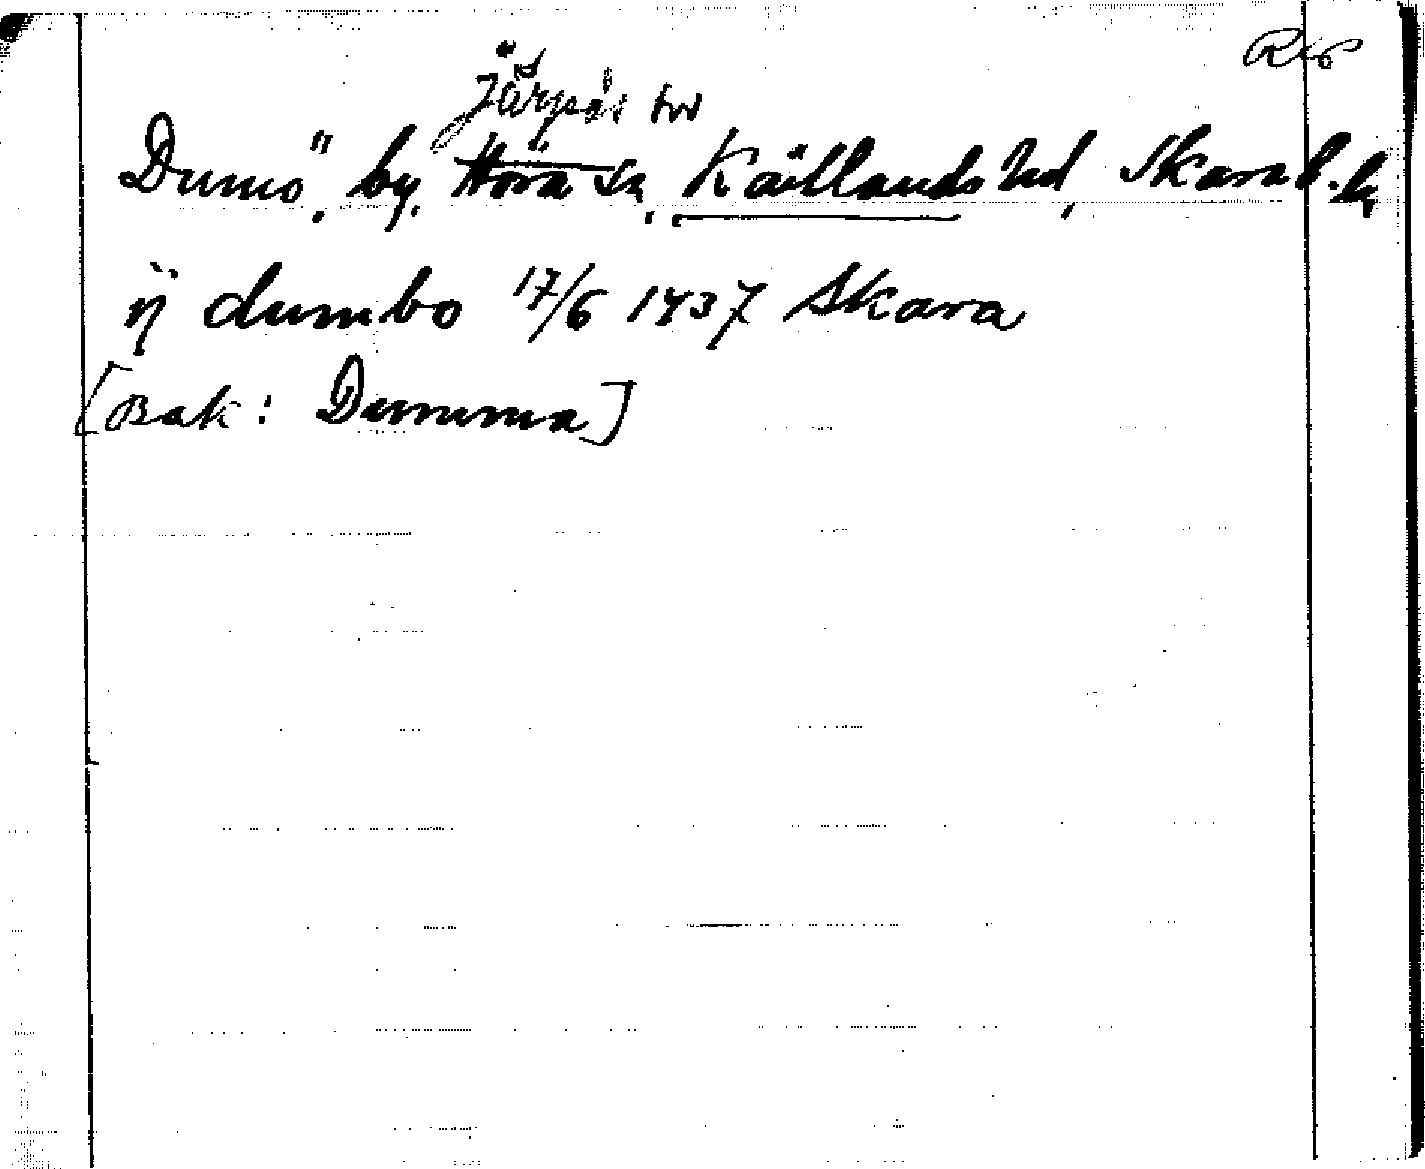 Järpås sn
Dumö, by, Hova sn, Kållands hd, Skarab. l.
ij dumbo 17/6 1437 Skara
[Bak: Dumma]